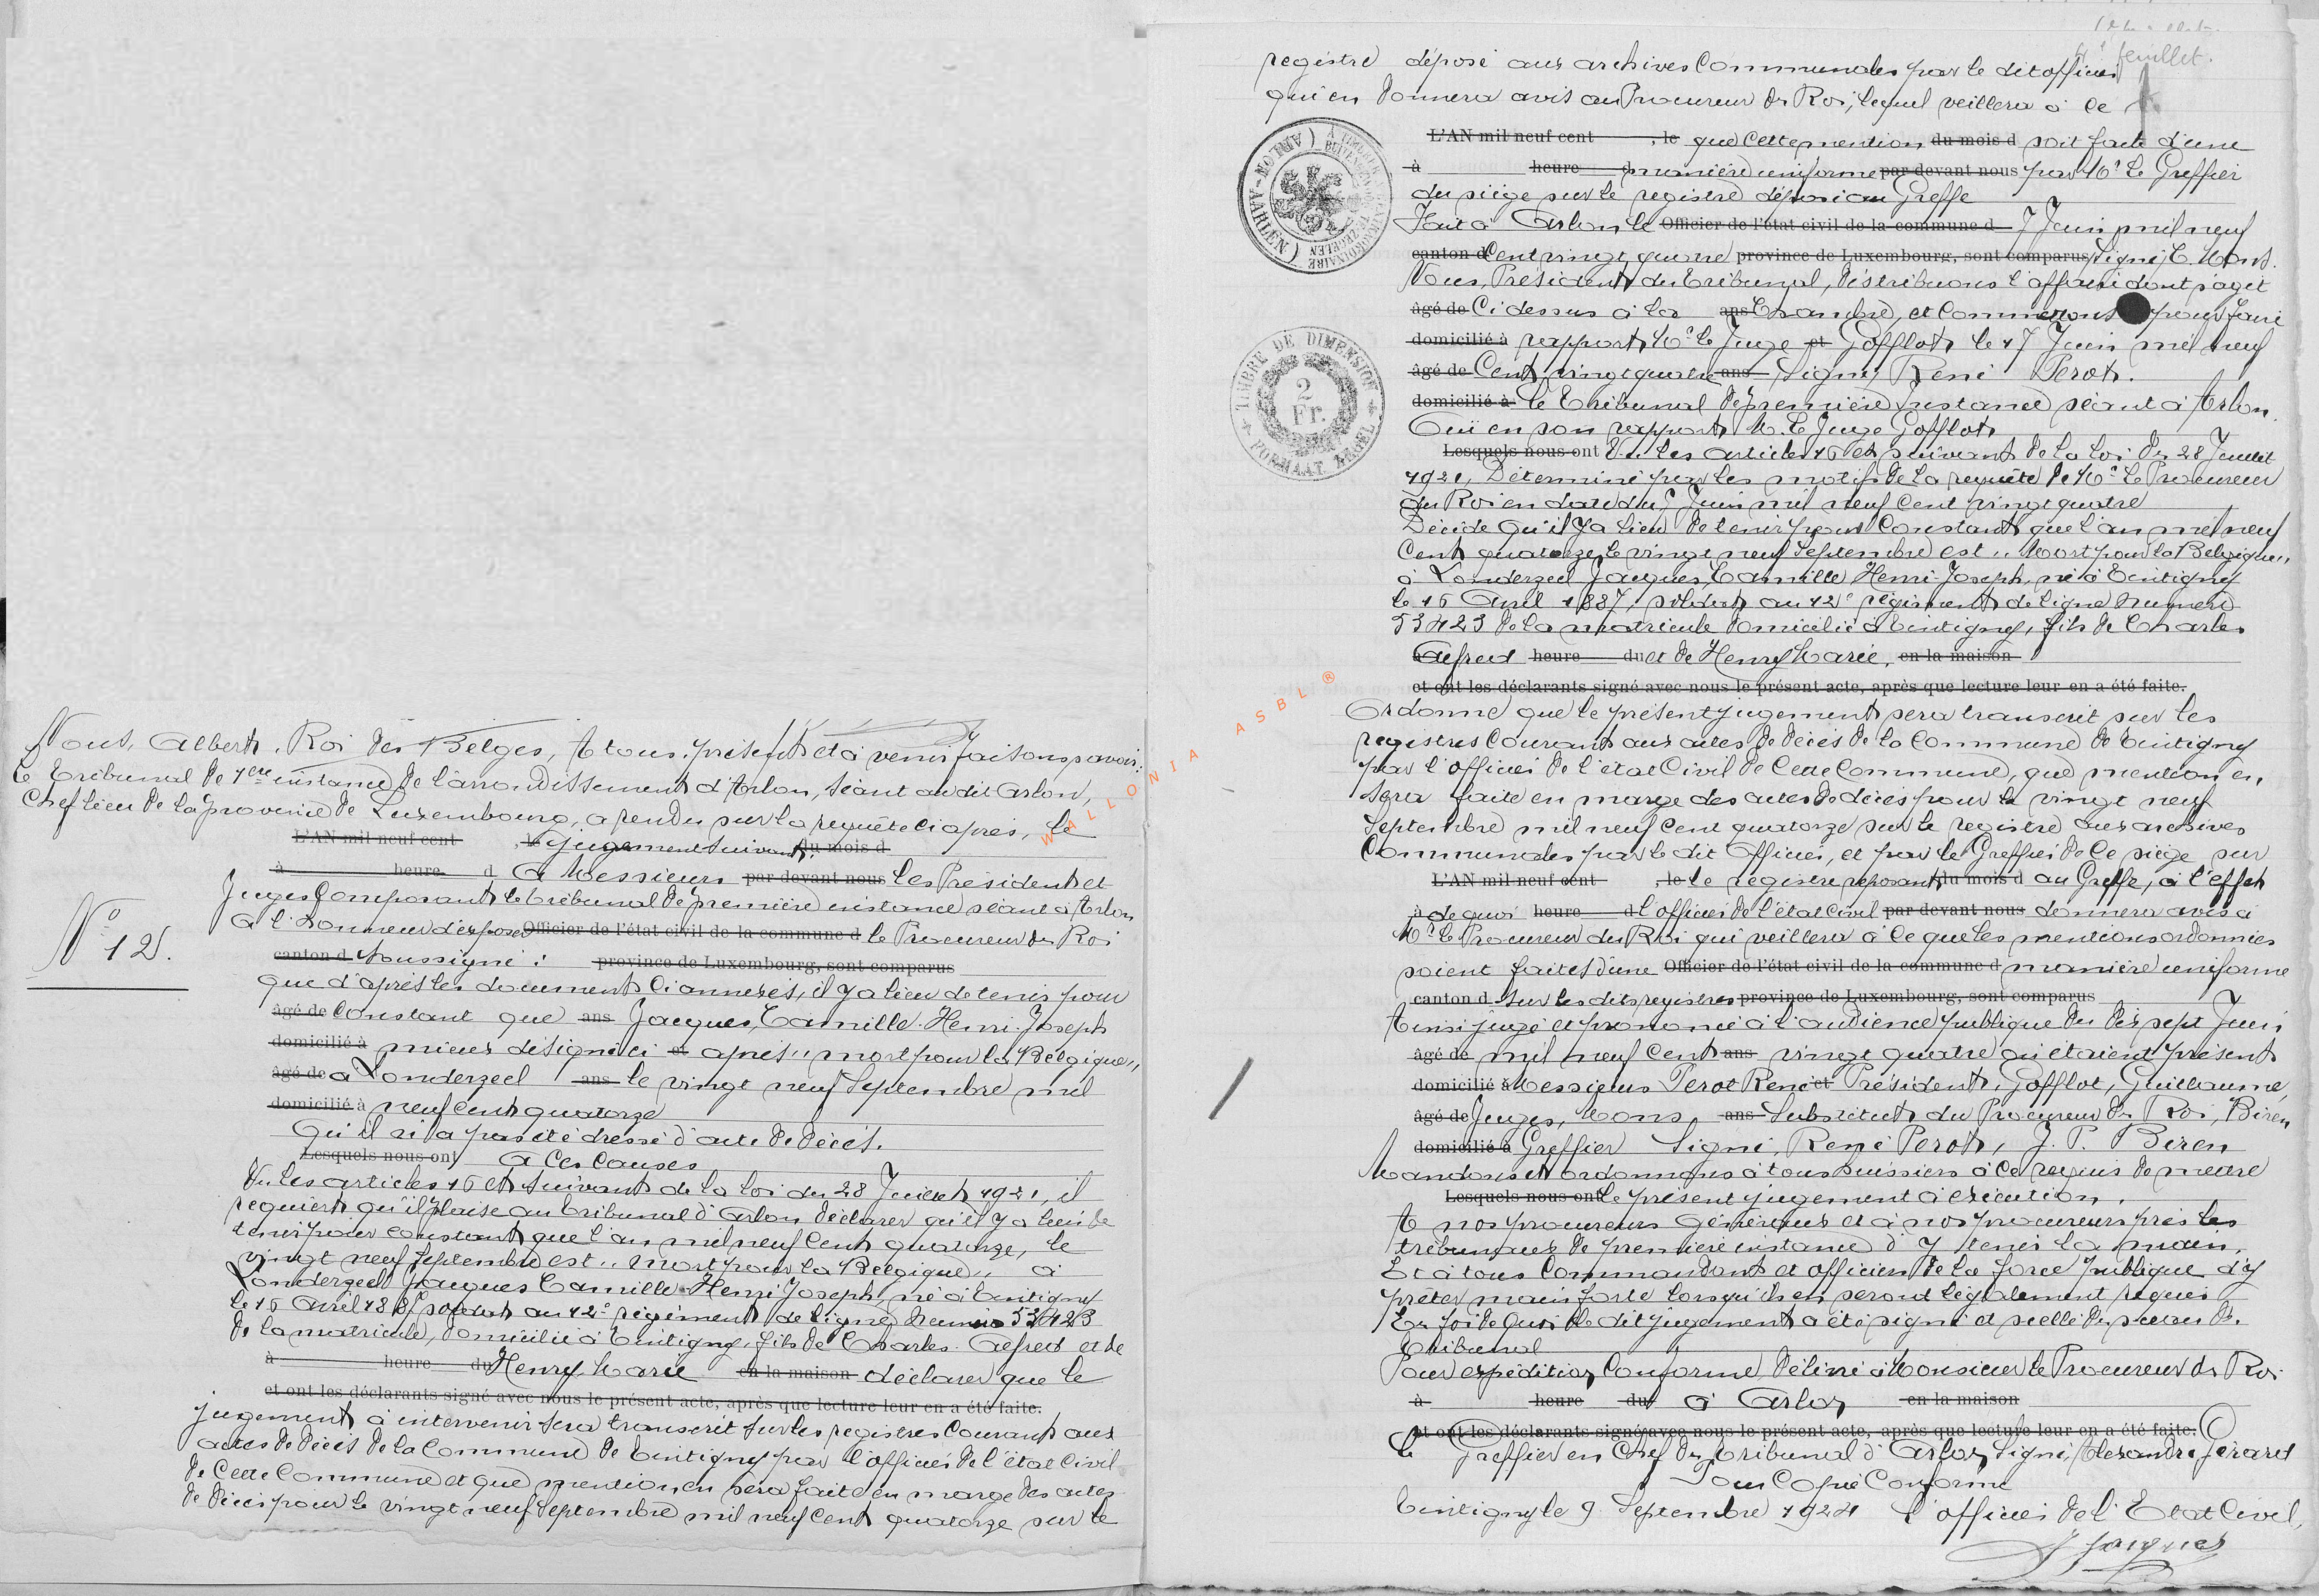 Nous, Albert, Roi des Belges, A tous présents et à venir faisons savoir:
Le Tribunal de 1ère instance de l'arrondissement d'Arlon, séant au dit Arlon,
Chef lieu de la province de Luxembourg, a rendu sur la requête ci après, le
L'AN mil neuf cent , le jugement suivant: du mois d
à heure d A Messieurs par devant nous les Président et
Juges Composant le tribunal de première instance séant à Arlon
A l'honneur d'exposer Officier de l'état civil de la commune d le Procureur du Roi
N° 12.
canton d soussigné : province de Luxembourg, sont comparus
que d'après les documents ci annexés, il y a lieu de tenir pour
âgé de Constant que ans Jacques, Camille. Henri. Joseph
domicilié à mieux désigné ci et après ,, mort pour la Belgique,,
âgé de à Londerzeel ans le vingt neuf Septembre mil
domicilié à neuf cent quatorze
Qu'il n'a pas été dressé d'acte de décès.
Lesquels nous ont A Ces Causes
Vu les articles 16 et suivant de la loi du 28 Juillet 1921, il
requiert qu'il plaise au tribunal d'Arlon déclarer qu'il y a lieu de
tenir pour constant que l'an mil neuf Cent quatorze, le
vingt neuf Septembre est ,, mort pour la Belgique ,, à
Londerzeel Jacques Camille Henri Joseph, né à Tintigny
le 16 avril 1887 soldat au 12e régiment de ligne Numéro 53423
de la matricule, domicilié à Tintigny, fils de Charles. Alfred et de
à heure du Henry, Marie en la maison déclarer que le
et ont les déclarants signé avec nous le présent acte, après que lecture leur en a été faite.
jugement à intervenir sera transcrit sur les registres Courant aux
actes de décès de la Commune de Tintigny par l'officier de l'état Civil
de Cette Commune et que mention en sera faite en marge des actes
de décès pour le vingt neuf Septembre mil neuf Cent quatorze sur le
4e feuillet.
registre déposé aux archives Communales par le dit officier
qui en donnera avis au Procureur du Roi, lequel veillera à ce
L'AN mil neuf cent , le que cette mention du mois d soit faite d'une
à heure d manière uniforme par devant nous par Mr le Greffier
du siège sur le registre déposé au Greffe
Fait à Arlon le Officier de l'état civil de la commune d 7 Juin mil neuf
canton d Cent vingt quatre province de Luxembourg, sont comparus signé, C. Mons.
Nous, Président du tribunal, distribuons l'affaire dont s'agit
âgé de Ci dessus à la ans Chambre, et Commettons pour faire
domicilié à rapport, Mr le Juge et Gofflot, le 17 Juin mil neuf
âgé de Cent vingt quatre ans Signé, René Perot.
domicilié à Le Tribunal de première Instance séant à Arlon.
Ouï en son rapport M. le Juge Gofflot
Lesquels nous ont Vu les articles 16 et suivant de la loi du 28 Juillet
1921, Déterminé par les motifs de la requête de Mr le Procureur
du Roi en date du 7 Juin mil neuf Cent vingt quatre
Décide qu'il y a lieu de tenir pour Constant que l'an mil neuf
Cent quatorze, le vingt neuf Septembre est ,, Mort pour la Belgique,,
à Londerzeel Jacques, Camille Henri-Joseph, né à Tintigny
le 16 Avril 1887, soldat au 12e régiment de ligne Numéro
53423 de la matricule domicilié à Tintigny, fils de Charles
à Alfred heure du et de Henry Marie, en la maison
et ont les déclarants signé avec nous le présent acte, après que lecture leur en a été faite.
Ordonne que le présent jugement sera transcrit sur les
registres Courant aux actes de décès de la Commune de Tintigny
par l'officier de l'état Civil de Cette Commune, que mention en
sera faite en marge des actes de décès pour le vingt neuf
Septembre mil neuf Cent quatorze sur le registre aux archives
Communales par le dit Officier, et par le Greffier de ce siège sur
L'AN mil neuf cent , le le registre reposant du mois d au Greffe, à l'effet
à de quoi heure d l'officier de l'état Civil par devant nous donnera avis à
Mr le Procureur du Roi qui veillera à ce que les mentions ordonnées
soient faites d'une Officier de l'état civil de la commune d manière uniforme
canton d sur les dits registres province de Luxembourg, sont comparus
Ainsi jugé et prononcé à l'audience publique du dix sept Juin
âgé de mil neuf Cent ans vingt quatre où étaient présent
domicilié à Messieurs Perot René et Président, Gofflot, Guillaume,
âgé de Juges, Mons, ans Substitut du Procureur du Roi, Biren
domicilié à Greffier Signé, René Perot, J. P. Biren
Mandons et ordonnons à tous huissiers à ce requis de mettre
Lesquels nous ont le présent jugement à exécution.
A nos procureurs Généraux et à nos procureurs près les
tribunaux de première instance d'y tenir la main,
Et à tous Commandants et officiers de la force publique d'y
prêter main forte lorsqu'ils en seront légalement requis
En foi de quoi le dit jugement a été signé et scellé du sceau du
Tribunal
Pour expédition Conforme, délivré à Monsieur le Procureur du Roi
à heure du à Arlon en la maison
et ont les déclarants signé avec nous le présent acte, après que lecture leur en a été faite.
Le Greffier en Chef du tribunal d'Arlon, Signé, Alexandre Gérard
Pour Copie Conforme
Tintigny le 9 Septembre 1924 L'officier de l'Etat Civil,
Jacques
TIMBRE DE DIMENSION
2
Fr.
FORMAAT ZEGEL
( ARLON-AARLEN )
WALLONIA ASBL ®